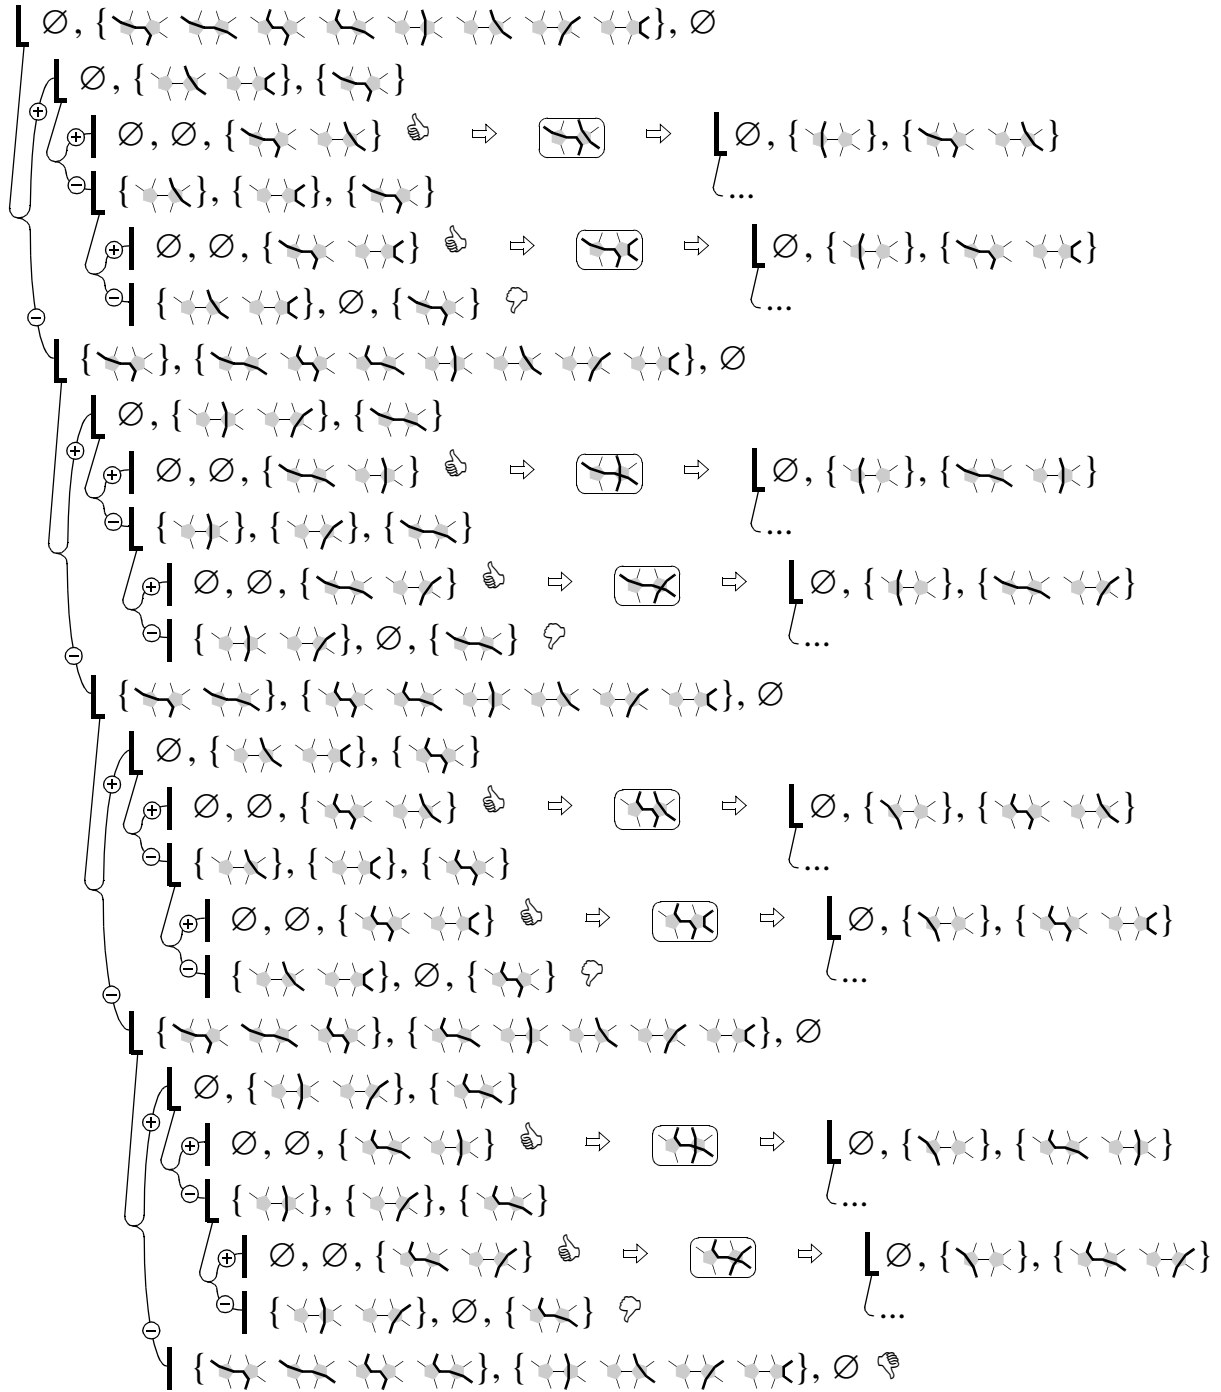 ∅, { }, ∅
⊕ ∅, { }, { }
⊕ ∅, ∅, { } ⇨ ⇨ ∅, { }, { }
⊖ { }, { }, { } ...
⊕ ∅, ∅, { } ⇨ ⇨ ∅, { }, { }
⊖ { }, ∅, { } ...
⊖ { }, { }, ∅
⊕ ∅, { }, { }
⊕ ∅, ∅, { } ⇨ ⇨ ∅, { }, { }
⊖ { }, { }, { } ...
⊕ ∅, ∅, { } ⇨ ⇨ ∅, { }, { }
⊖ { }, ∅, { } ...
⊖ { }, { }, ∅
⊕ ∅, { }, { }
⊕ ∅, ∅, { } ⇨ ⇨ ∅, { }, { }
⊖ { }, { }, { } ...
⊕ ∅, ∅, { } ⇨ ⇨ ∅, { }, { }
⊖ { }, ∅, { } ...
⊖ { }, { }, ∅
⊕ ∅, { }, { }
⊕ ∅, ∅, { } ⇨ ⇨ ∅, { }, { }
⊖ { }, { }, { } ...
⊕ ∅, ∅, { } ⇨ ⇨ ∅, { }, { }
⊖ { }, ∅, { } ...
⊖ { }, { }, ∅